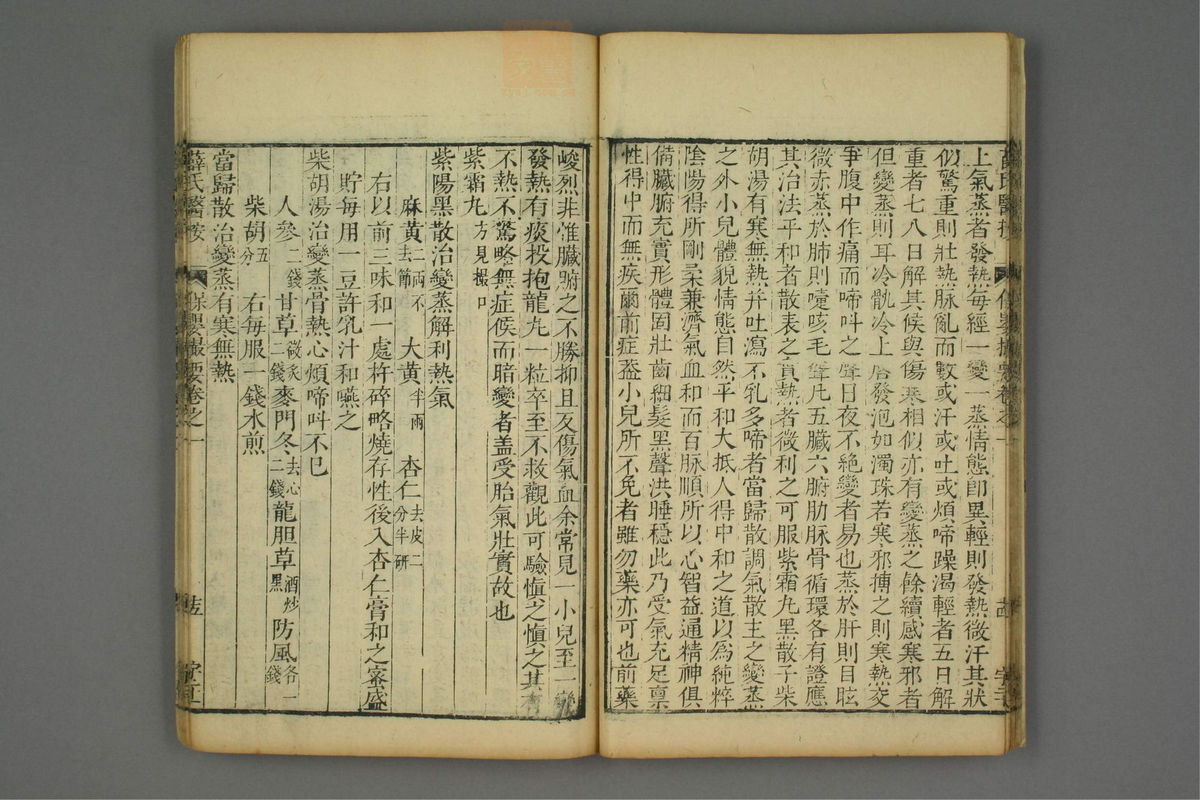 上氣蒸者發熱每經一變一蒸情態卽異輕則發熱微汗其狀
似驚重則壯熱脉亂而數或汗或吐或煩啼躁渴輕者五日解
重者七八日解其候與傷寒相似亦有變蒸之餘續感寒邪者
但變蒸則耳冷骩冷上唇發泡如濁珠若寒邪搏之則寒熱交
爭腹中作痛而啼呌之聲日夜不絶變者易也蒸於肝則目眩
微赤蒸於肺則嚏咳毛聳凡五臟六腑筋脉骨循環各有證應
其治法平和者散表之實熱者微利之可服紫霜丸黑散子柴
胡湯有寒無熱幷吐瀉不乳多啼者當歸散調氣散主之變蒸
之外小兒體貌情態自然平和大抵人得中和之道以爲純粹
陰陽得所剛柔兼濟氣血和而百脉順所以心智益通精神俱
備臟腑充實形體固壯齒細髮黑聲洪睡穩此乃受氣充足禀
性得中而無疾爾前症葢小兒所不免者雖勿藥亦可也前藥
峻烈非惟臟腑之不勝抑且反傷氣血余常見一小兒至一變
發熱有痰投抱龍丸一粒卒至不救觀此可驗愼之愼之其有
不熱不驚略無症候而暗變者盖受胎氣壯實故也
紫霜丸方見撮口
紫陽黑散治變蒸解利熱氣
麻黃二兩不去節 大黃半兩 杏仁去皮二分半研
右以前三味和一處杵碎略燒存性後入杏仁膏和之密盛
貯每用一豆許乳汁和嚥之
柴胡湯治變蒸骨熱心煩啼呌不已
人參二錢 甘草微炙二錢 麥門冬去心二錢 龍胆草酒炒黑 防風各一錢
柴胡五分 右每服一錢水煎
當歸散治變蒸有寒無熱
薛氏醫按 保嬰撮要卷之一